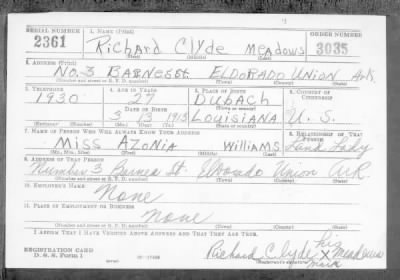 SERIAL NUMBER 1. NAME (Print) ORDER NUMBER
2361 Richard Clyde Meadows 3035
(First) (Middle) (Last)
2. ADDRESS (Print)
No. 3 BARNES St. ELDORADO UNION Ark.
(Number and street or R. F. D. number) (Town) (County) (State)
3. TELEPHONE 4. AGE IN YEARS 5. PLACE OF BIRTH 6. COUNTRY OF CITIZENSHIP
1930 27 DUBACH
DATE OF BIRTH (Town or county)
3 13 1913 LOUISIANA U. S.
(Mo.) (Day) (Yr.) (State or country)
7. NAME OF PERSON WHO WILL ALWAYS KNOW YOUR ADDRESS 8. RELATIONSHIP OF THAT PERSON
Miss AZONIA Williams Land Lady
(Mr., Mrs., Miss) (First) (Middle) (Last)
9. ADDRESS OF THAT PERSON
Number 3 Barnes St. Eldorado Union Ark
(Number and street or R. F. D. number) (Town) (County) (State)
10. EMPLOYER'S NAME
None
11. PLACE OF EMPLOYMENT OR BUSINESS
None
(Number and street or R. F. D. number) (Town) (County) (State)
I AFFIRM THAT I HAVE VERIFIED ABOVE ANSWERS AND THAT THEY ARE TRUE.
REGISTRATION CARD
D. S. S. Form 1
his
Richard Clyde X Meadows
mark
(Registrant's signature)